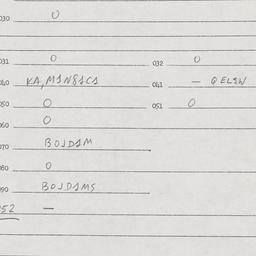 030 0
031 0 032 0
040 KA,M1N81C1 041 — QEL1W
050 0 051 0
060 0
070 BOJD1M
080 0
090 BOJD1MS
052 —